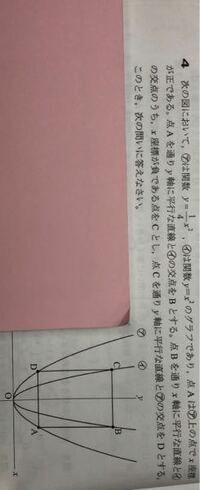 4 次の図において，㋐は関数 y=1/4x²，㋑は関数 y=x² のグラフであり，点Aは㋐上の点で x座標
が正である。点Aを通り y軸に平行な直線と㋑の交点をBとする。点Bを通り x軸に平行な直線と㋑
の交点のうち，x座標が負である点をCとし，点Cを通り y軸に平行な直線と㋐の交点をDとする。
このとき，次の問いに答えなさい。
㋐ ㋑ y
C B
D A
O x